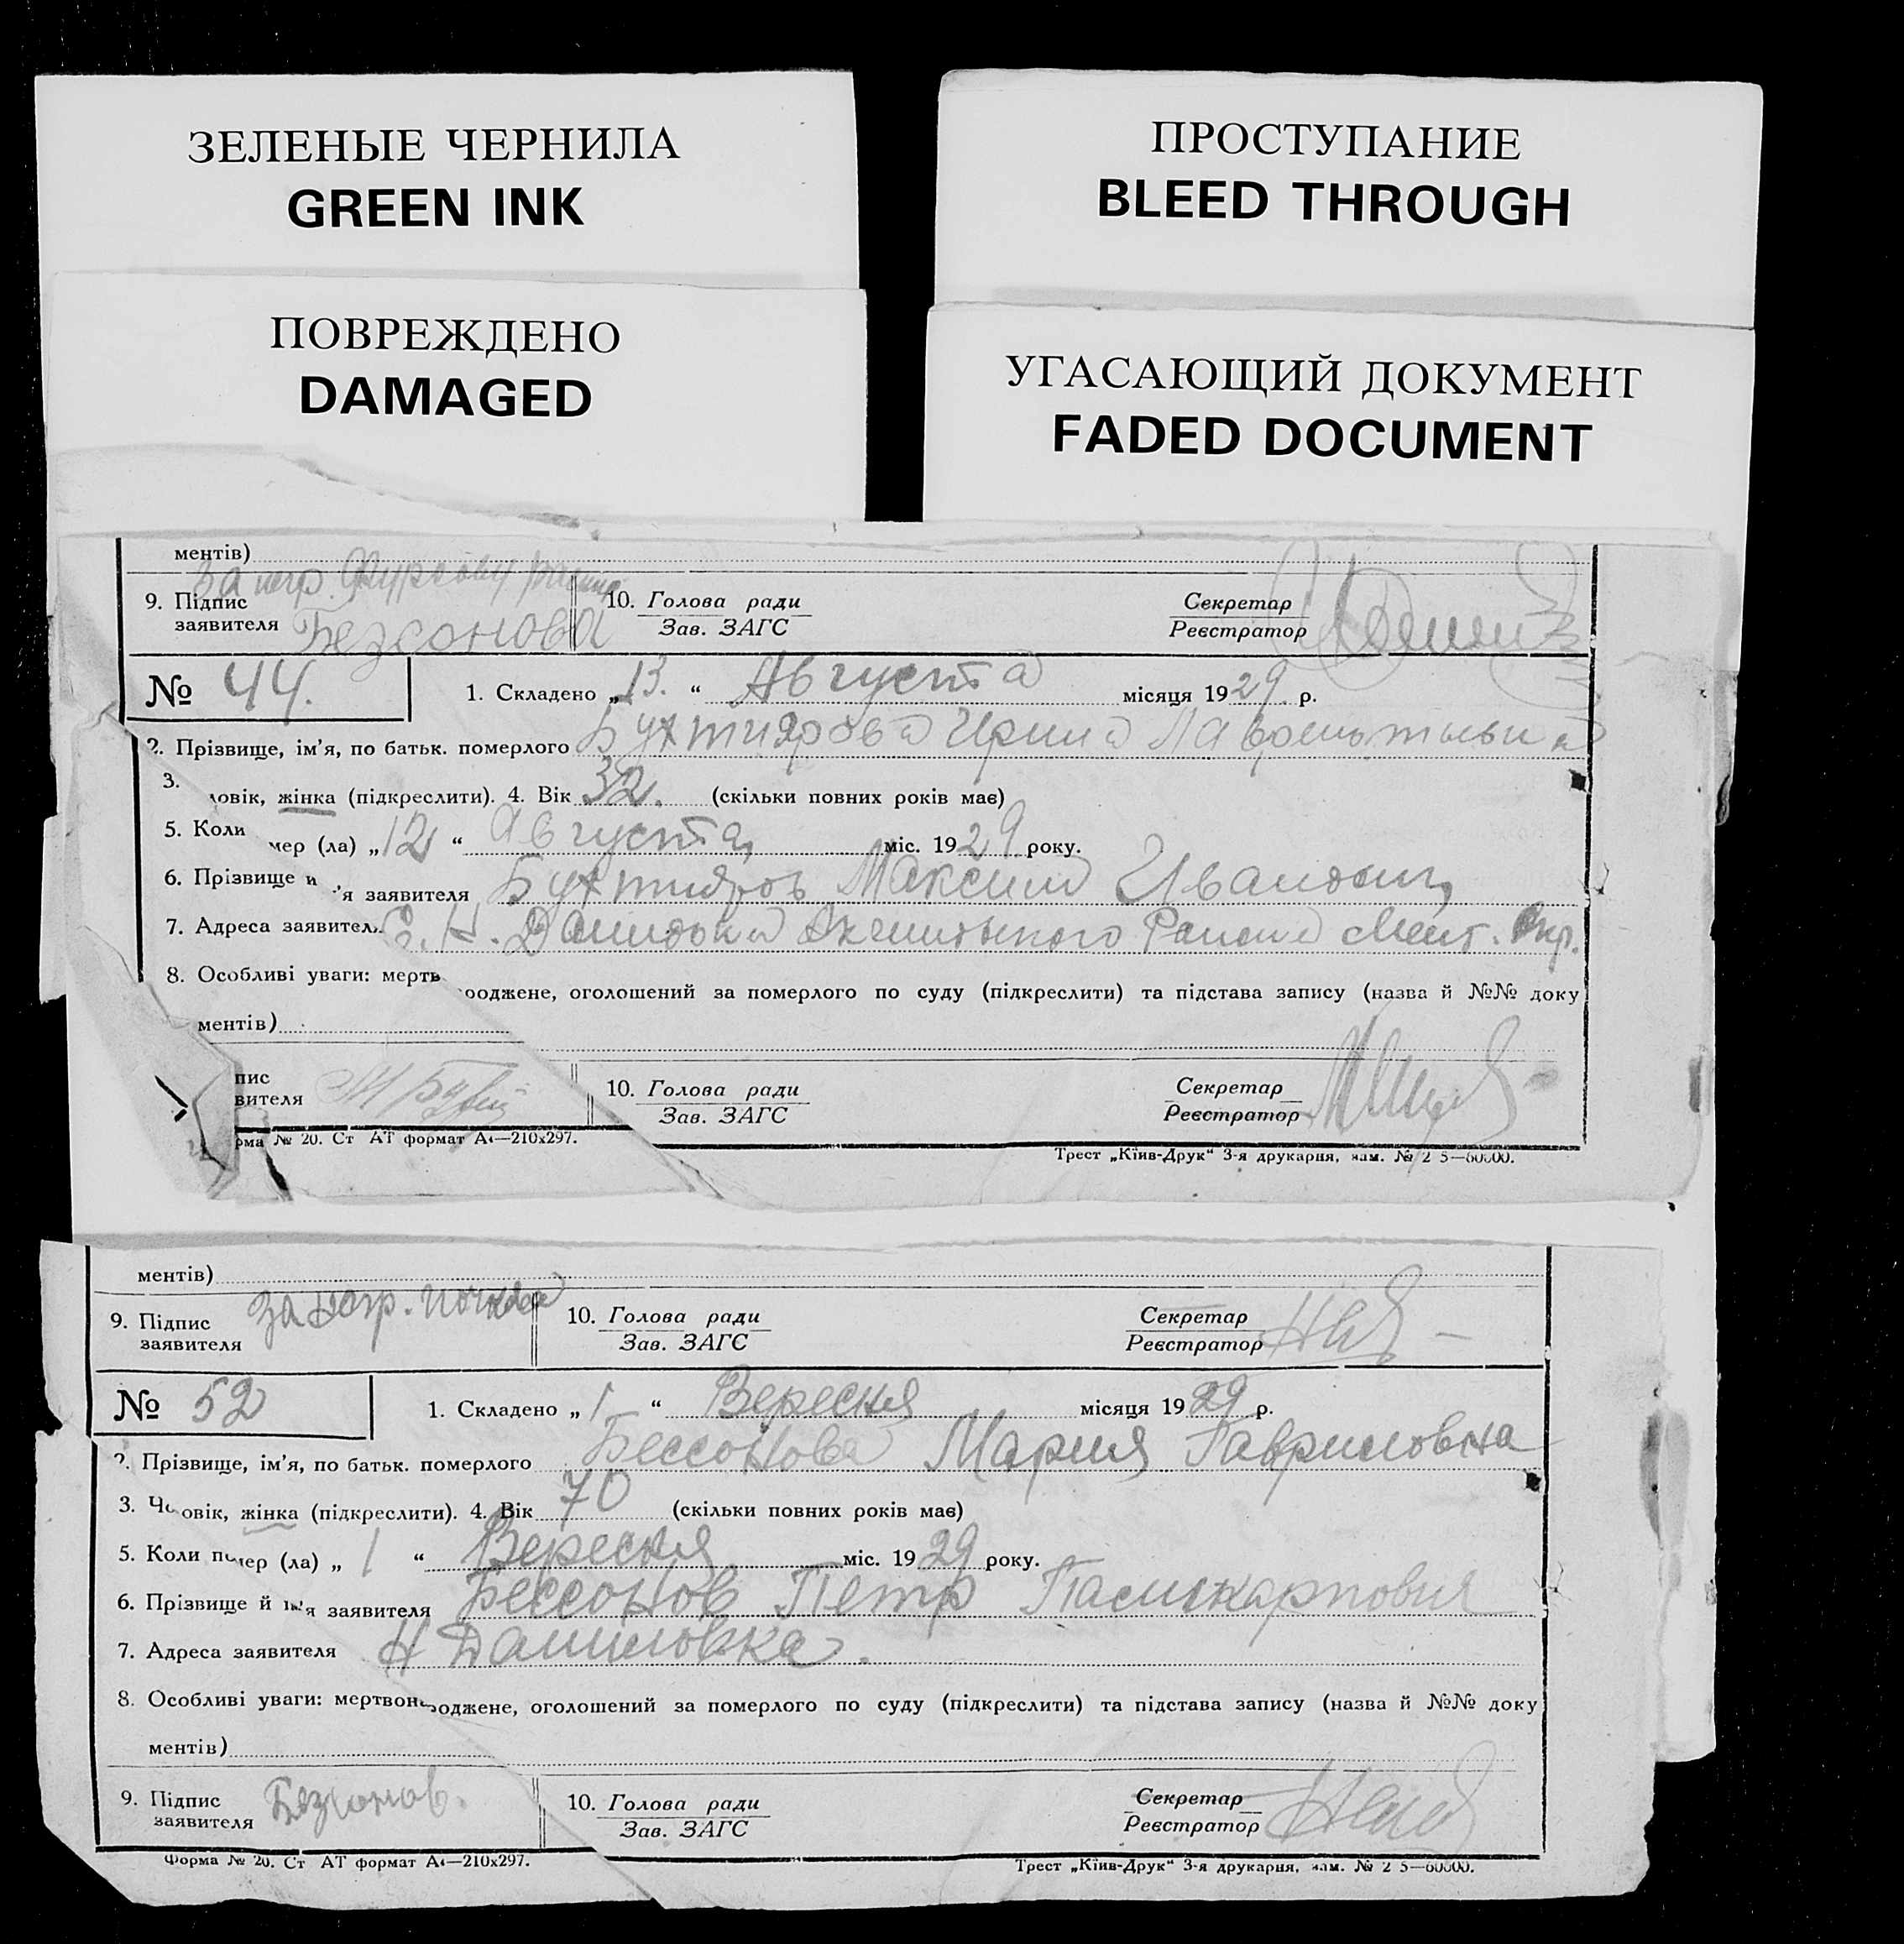 ЗЕЛЕНЫЕ ЧЕРНИЛА
GREEN INK
ПОВРЕЖДЕНО
DAMAGED
ПРОСТУПАНИЕ
BLEED THROUGH
УГАСАЮЩИЙ ДОКУМЕНТ
FADED DOCUMENT
ментів)
За негр.
9. Підпис заявителя Безсонова 10. Голова ради Зав. ЗАГС Секретар Реєстратор
№ 44. 1. Складено „13.“ Августа місяця 1929 р.
2. Прізвище, ім'я, по батьк. померлого Бухтиярова Ирина Лаврентьевна
3. ловік, жінка (підкреслити). 4. Вік 32. (скільки повних років має)
5. Коли мер (ла) „12“ Августа міс. 1929 року.
6. Прізвище и 'я заявителя Бухтияров Максим Иванович
7. Адреса заявител. Района
8. Особливі уваги: мертв ооджене, оголошений за померлого по суду (підкреслити) та підстава запису (назва й №№ доку
ментів)
пис вителя 10. Голова ради Зав. ЗАГС Секретар Реєстратор
рма № 20. Ст АТ формат А4—210х297.
Трест „Київ-Друк“ 3-я друкарня, зам. № 2 5—60000.
ментів)
9. Підпис заявителя за негр. 10. Голова ради Зав. ЗАГС Секретар Реєстратор
№ 52 1. Складено „1“ Вересня місяця 1929 р.
2. Прізвище, ім'я, по батьк. померлого Бессонова Мария Гавриловна
3. Чоловік, жінка (підкреслити). 4. Вік 70 (скільки повних років має)
5. Коли помер (ла) „1“ Вересня міс. 1929 року.
6. Прізвище й ім'я заявителя Бессонов Петр Паликарпович
7. Адреса заявителя Н Даниловка.
8. Особливі уваги: мертвонароджене, оголошений за померлого по суду (підкреслити) та підстава запису (назва й №№ доку
ментів)
9. Підпис заявителя Безсонов. 10. Голова ради Зав. ЗАГС Секретар Реєстратор
Форма № 20. Ст АТ формат А4—210х297.
Трест „Київ-Друк“ 3-я друкарня, зам. № 2 5—60000.